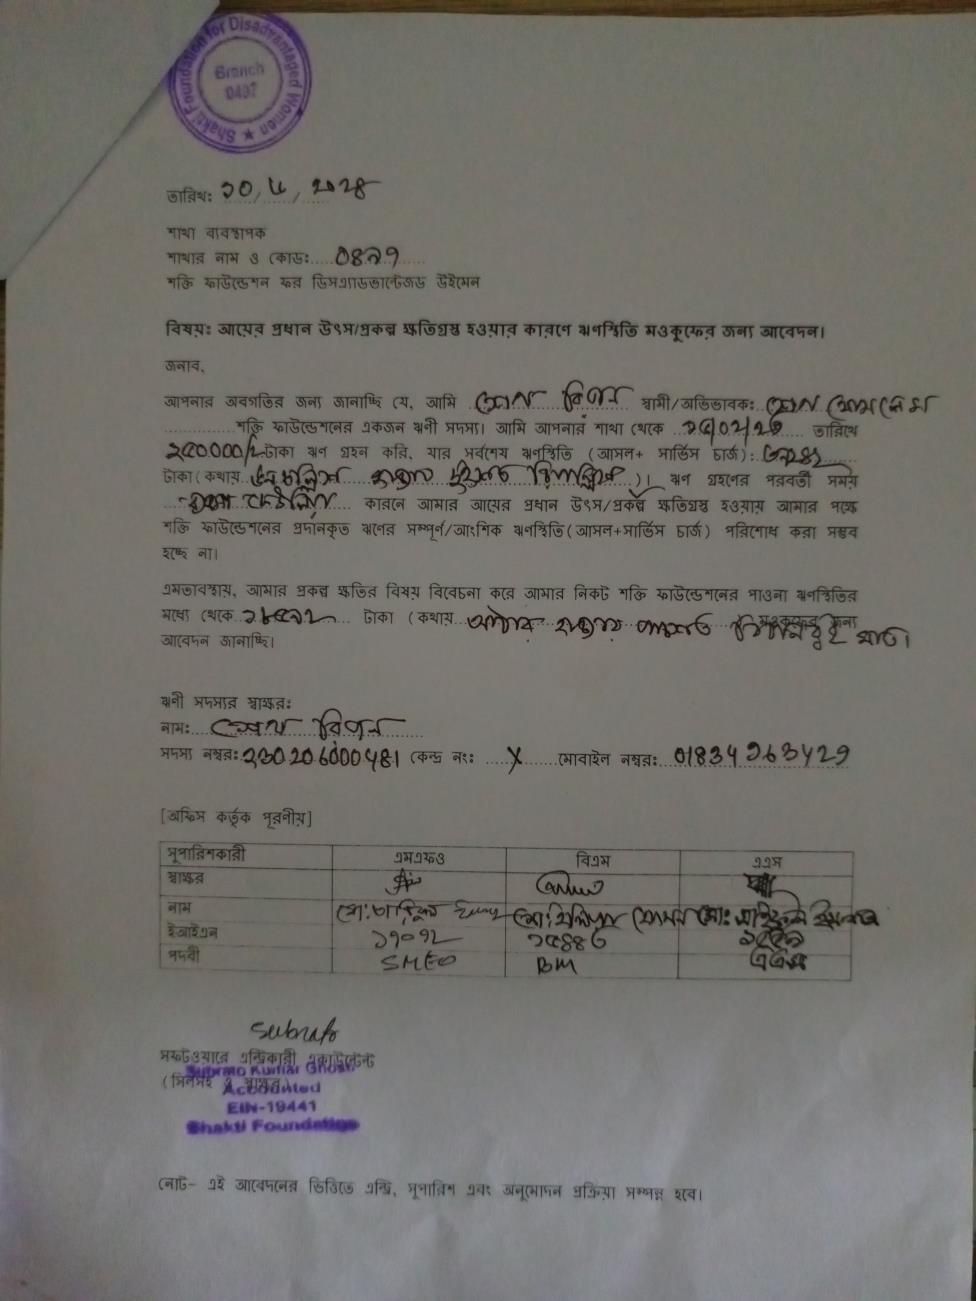 Shakti Foundation for Disadvantaged Women ★
Branch
0497
তারিখ: ১০/৬/২০২৪
শাখা ব্যবস্থাপক
শাখার নাম ও কোড: ০৪৯৭
শক্তি ফাউন্ডেশন ফর ডিসএ্যাডভান্টেজড উইমেন
বিষয়: আয়ের প্রধান উৎস/প্রকল্প ক্ষতিগ্রস্ত হওয়ার কারণে ঋণস্থিতি মওকুফের জন্য আবেদন।
জনাব,
আপনার অবগতির জন্য জানাচ্ছি যে, আমি শেখ রিপন স্বামী/অভিভাবক: শেখ
শক্তি ফাউন্ডেশনের একজন ঋণী সদস্য। আমি আপনার শাখা থেকে তারিখে
টাকা ঋণ গ্রহন করি, যার সর্বশেষ ঋণস্থিতি (আসল+ সার্ভিস চার্জ):
টাকা (কথায় হাজার দুইশত বিয়াল্লিশ )। ঋণ গ্রহণের পরবর্তী সময়
কারনে আমার আয়ের প্রধান উৎস/প্রকল্প ক্ষতিগ্রস্ত হওয়ায় আমার পক্ষে
শক্তি ফাউন্ডেশনের প্রদানকৃত ঋণের সম্পূর্ণ/আংশিক ঋণস্থিতি (আসল+সার্ভিস চার্জ) পরিশোধ করা সম্ভব
হচ্ছে না।
এমতাবস্থায়, আমার প্রকল্প ক্ষতির বিষয় বিবেচনা করে আমার নিকট শক্তি ফাউন্ডেশনের পাওনা ঋণস্থিতির
মধ্যে থেকে টাকা (কথায় আঠার হাজার পাঁচশত মওকুফের জন্য
আবেদন জানাচ্ছি।
ঋণী সদস্যর স্বাক্ষর:
নাম: শেখ রিপন
সদস্য নম্বর: 230206000481 কেন্দ্র নং: X মোবাইল নম্বর: 01834963429
[অফিস কর্তৃক পূরনীয়]
সুপারিশকারী এমএফও বিএম এএম
স্বাক্ষর
নাম
ইআইএন ১৭০৭২ ১৫৪৪৬
পদবী SMEO BM
Subrato
সফটওয়্যারে এন্ট্রিকারী একাউন্টেন্ট
Subrato Kumar Ghosh
(সিলসহ স্বাক্ষর)
EIN-19441
Shakti Foundation
নোট- এই আবেদনের ভিত্তিতে এন্ট্রি, সুপারিশ এবং অনুমোদন প্রক্রিয়া সম্পন্ন হবে।